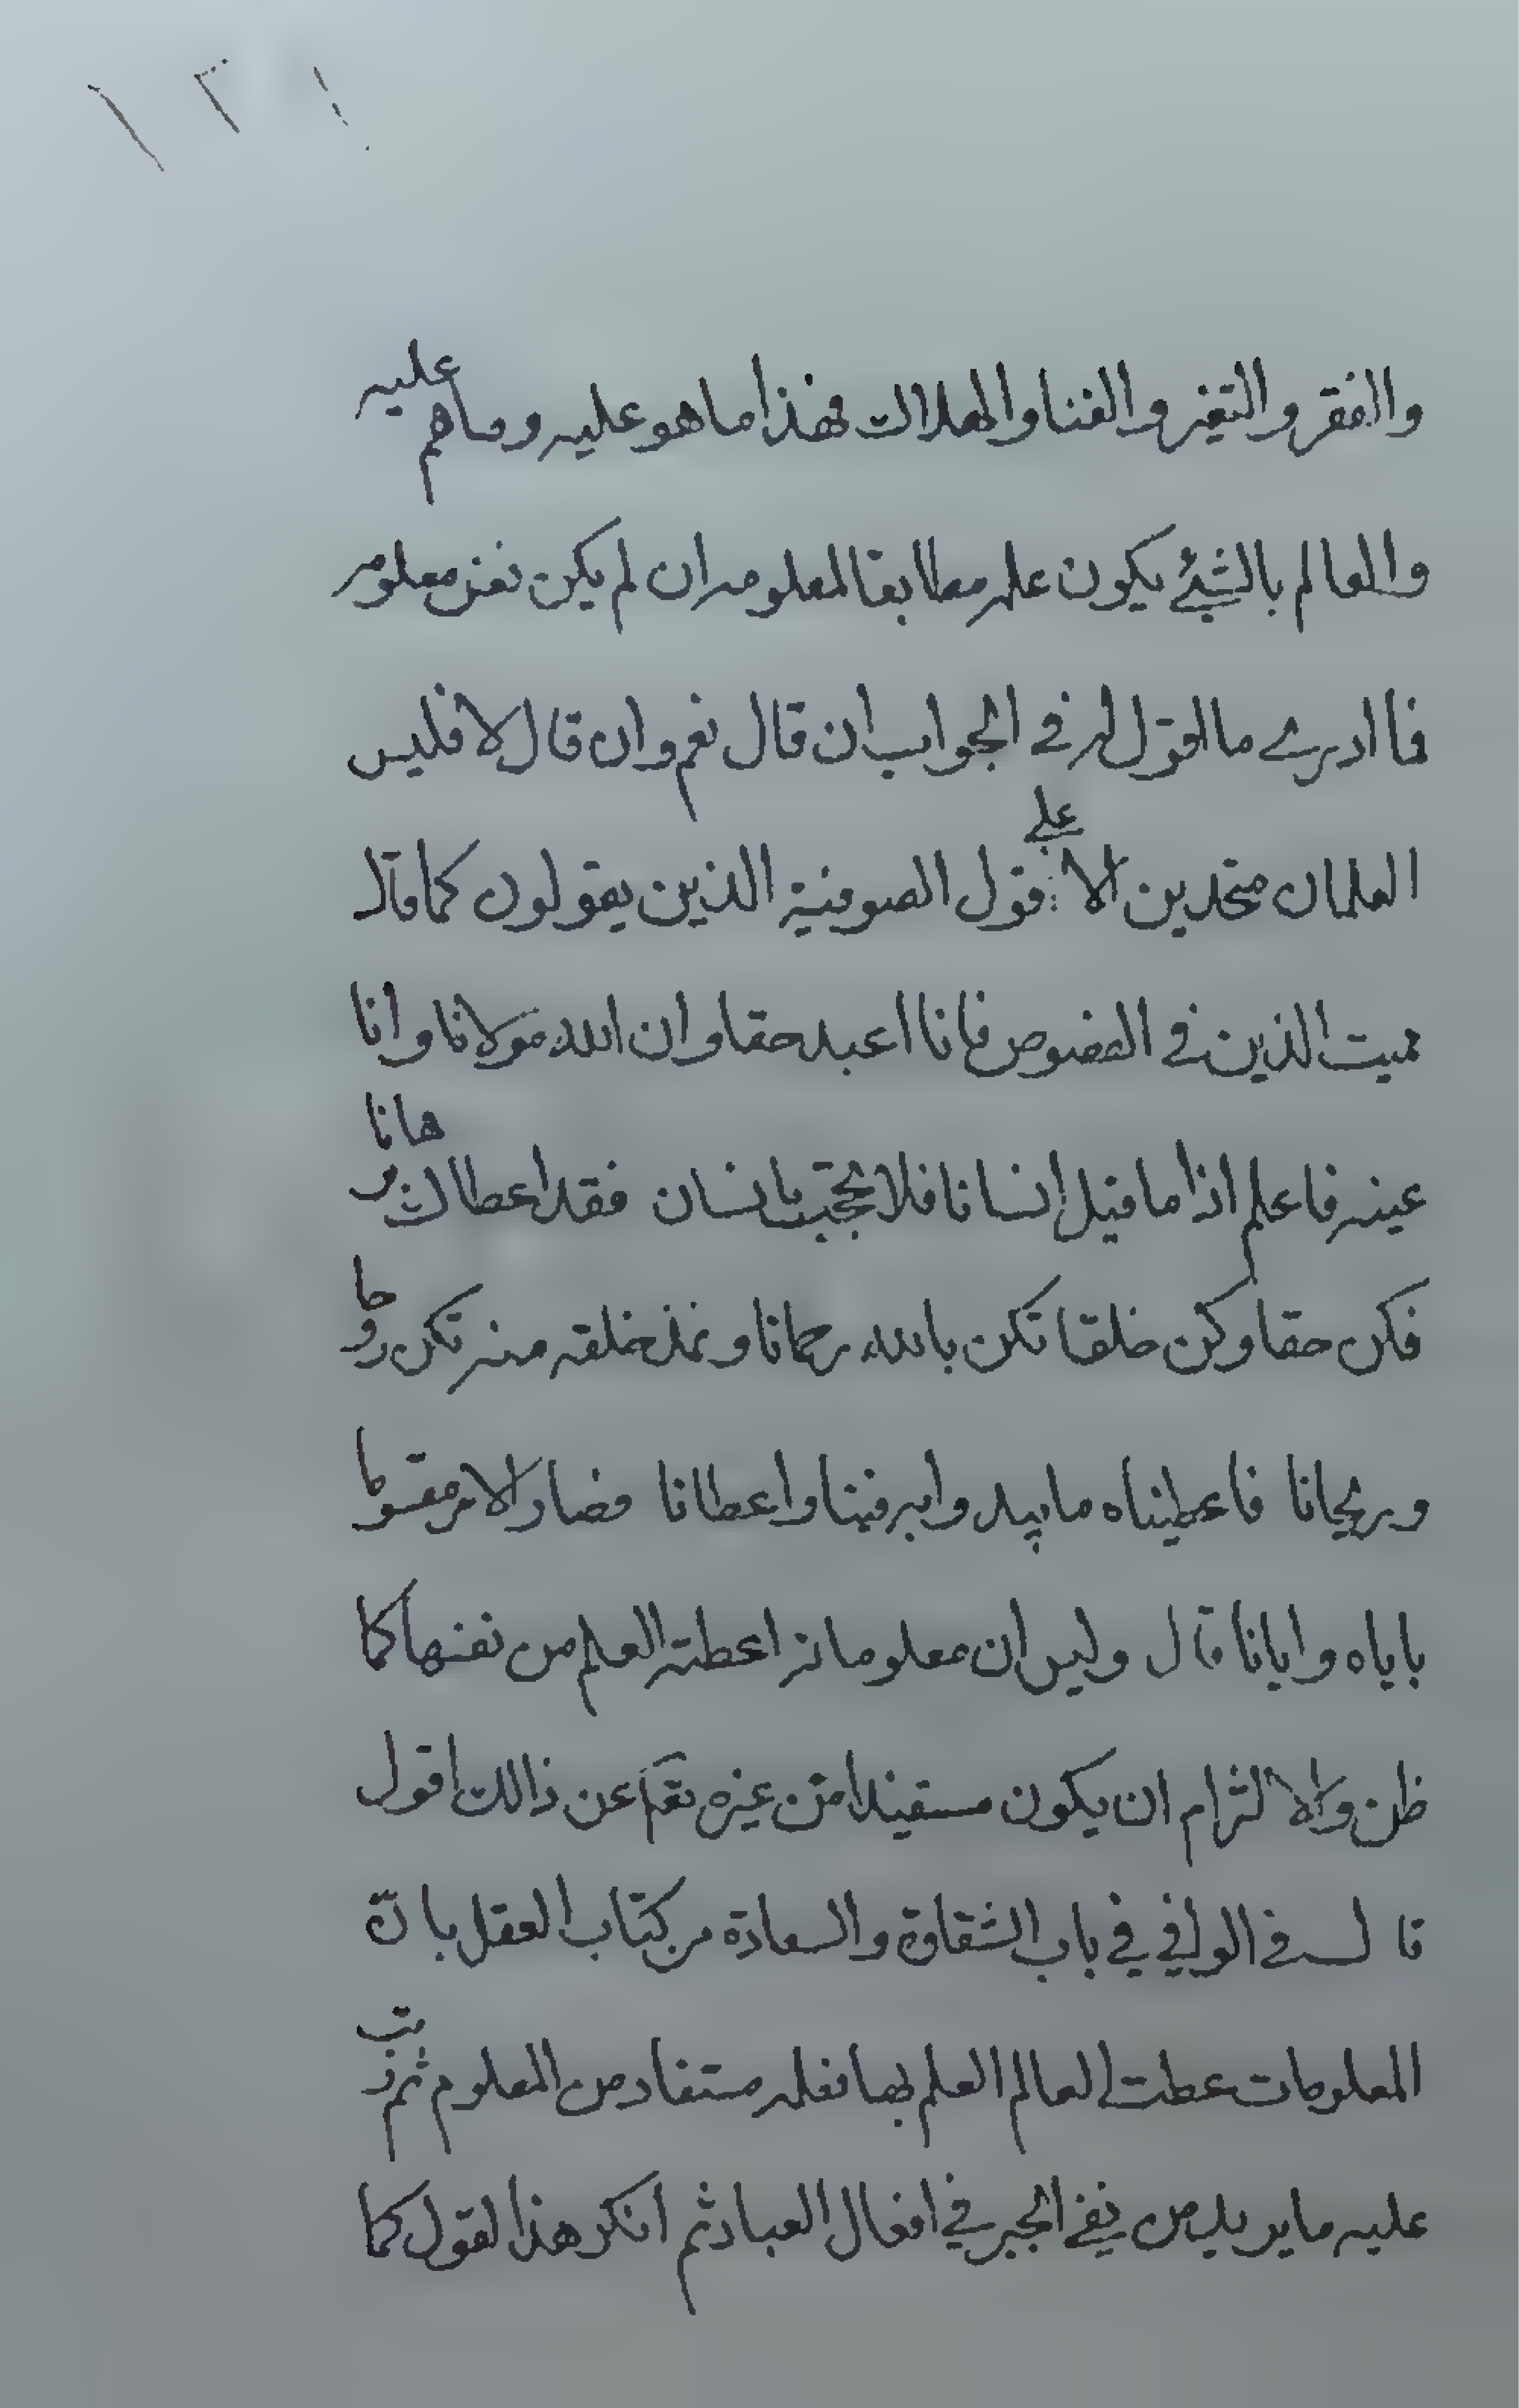 والفقر والتغير والفنا والهلاك فهذا ما هو عليه وما هم عليه
والعالم بالشيئ يكون علمه مطابقا لمعلومه ان لم يكن نفس معلومه
فما ادري ما القول له في الجواب ان قال نعم وان قال لا فليس
العلمان متحدين الا على قول الصوفية الذين يقولون كما قال
مميت الدين في الفصوص فانا اعبد حقا وان الله مولانا وانا
عينه فاعلم اذا ما قيل انسانا فلا تحتجب بانسان فقد اعطاك برهانا
فكن حقا وكن خلقا تكن بالله رحمانا وغذ خلقه منه تكن روحا
وريحانا فاعطيناه ما يبدو به فينا واعطانا فصار الامر مقسوما
باياه وايانا قال وليس ان معلوماته اعطته العلم من نفسها كما
ظن والا لزم ان يكون مستفيدا من غيره تعم عن ذالك اقول
قال في الوافي في باب الشقاوة والسعادة من كتاب العقل بان
المعلومات عطت لعالم العلم بها فعلمه مستفاد من المعلوم ثم رتب
عليه ما يريد من نفي الجبر في افعال العباد ثم انكر هذا لقول كما